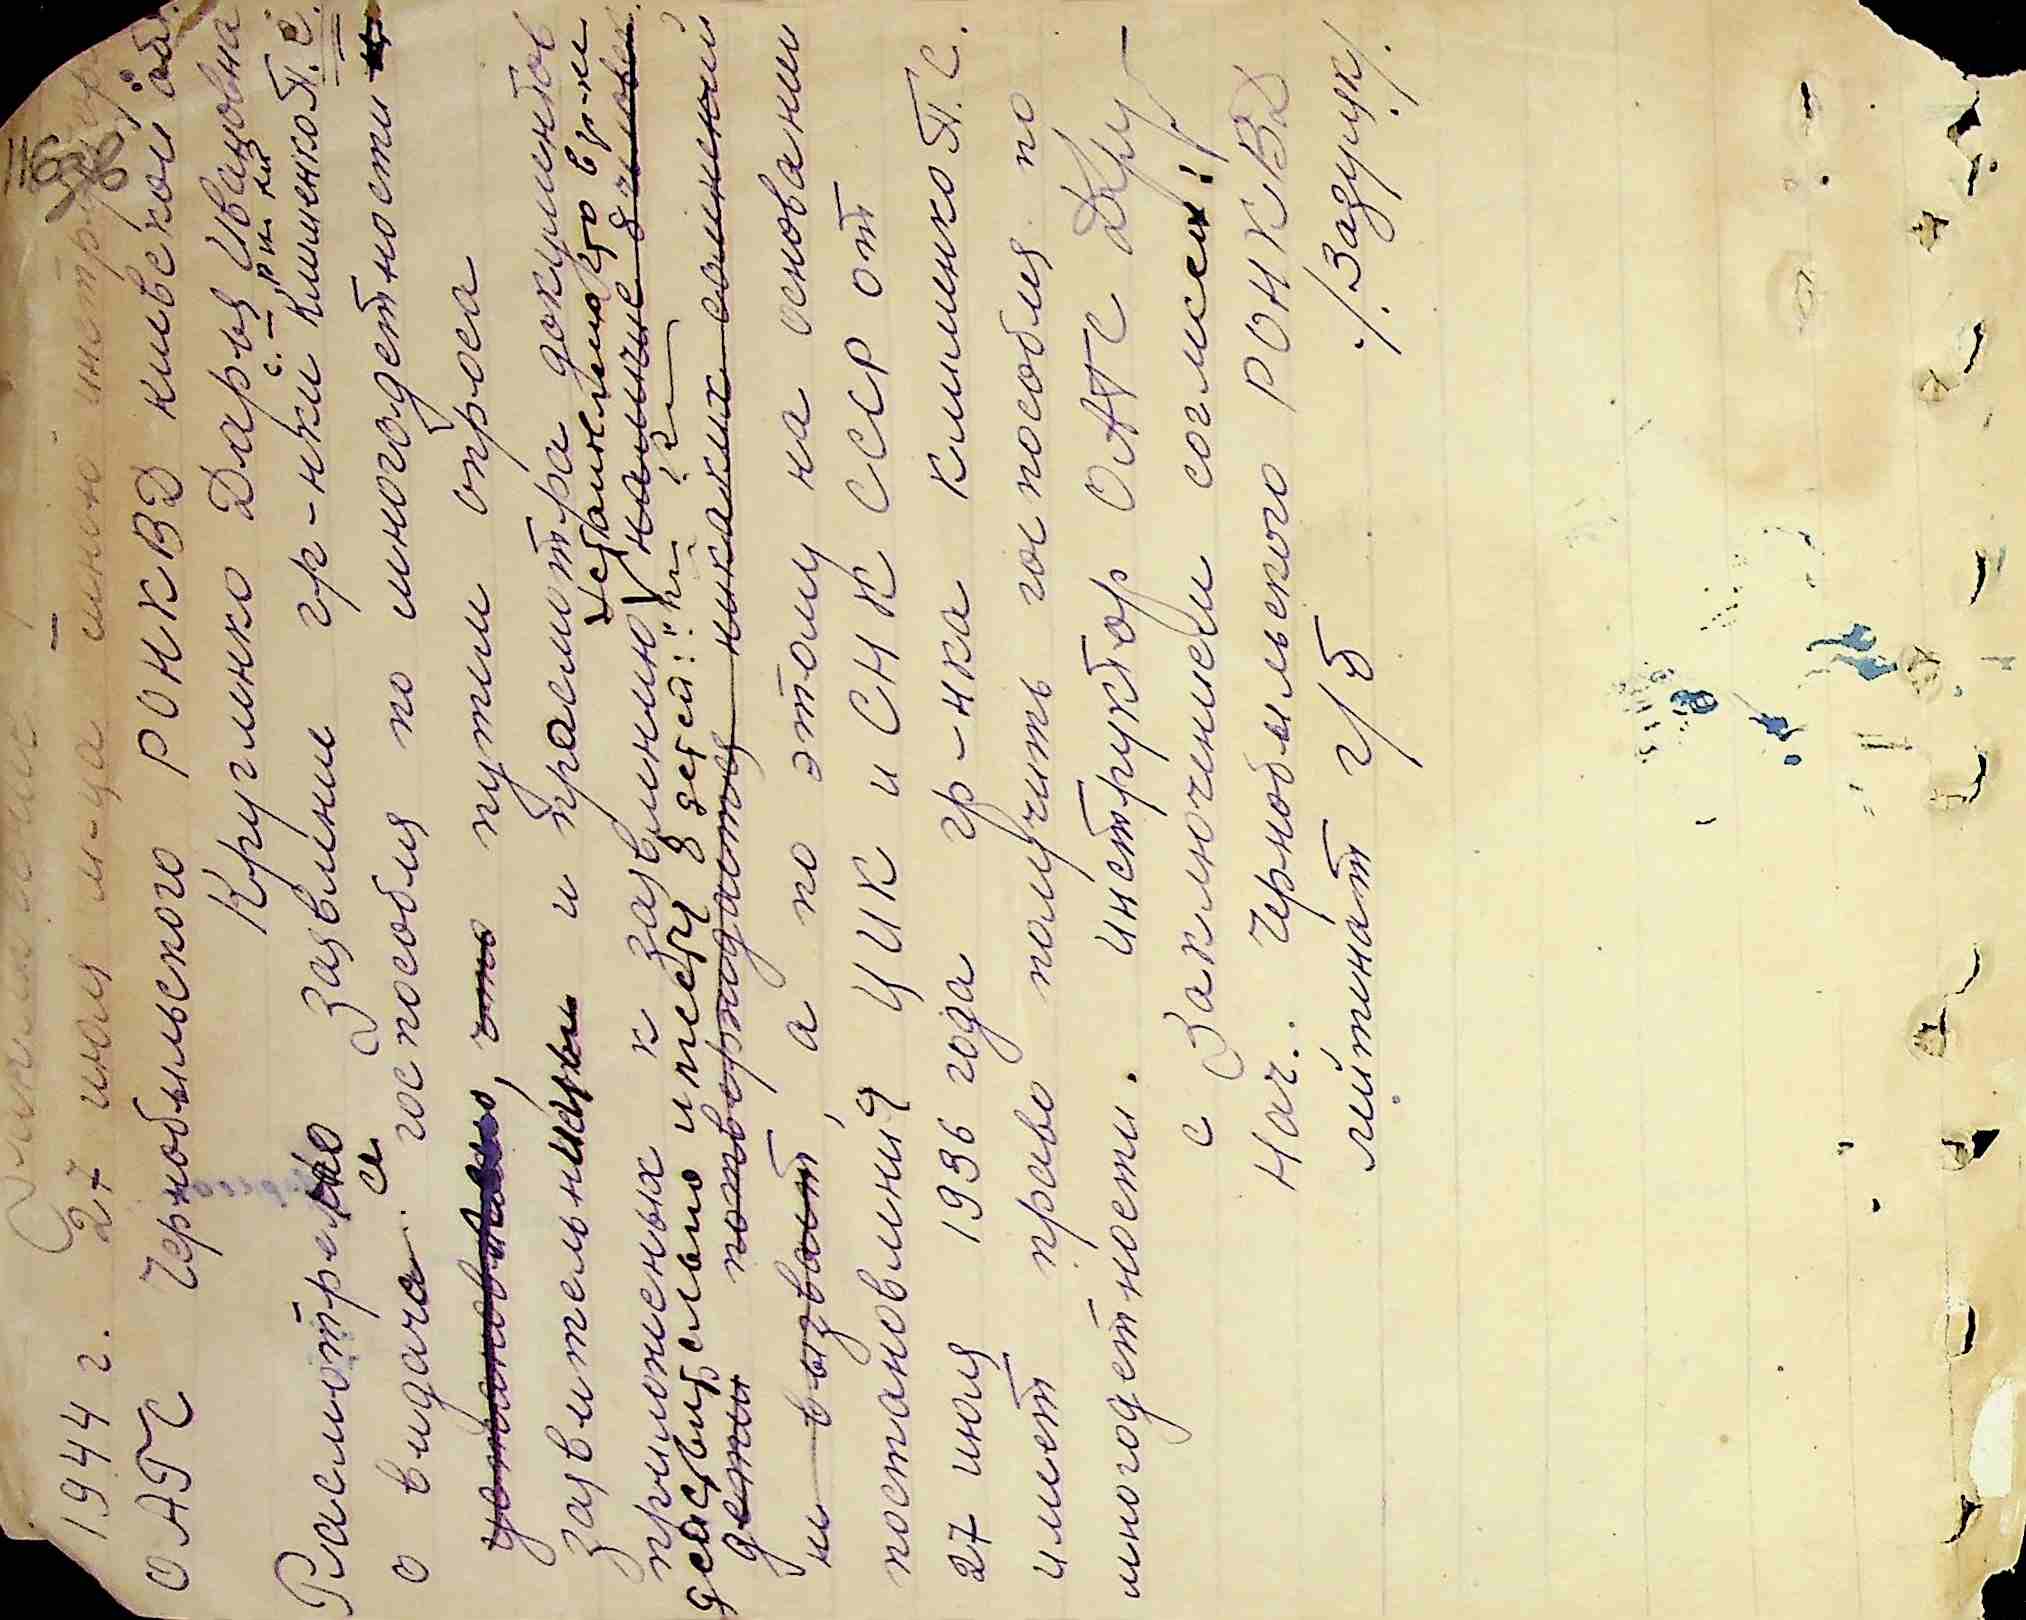 116
Заключение
1944 г. 27 июля м-ца мною инструктор
ОАГС Чернобыльского РОНКВД киевской обл.
Кругленко Дарья Ивановна
Расмотрено Заявлении гр-нки Клименко П.С.
о видачи госпособия по многодетности
установлено, что путем опроса
заявительницы и просмотра документов
установлено что в гр-ки
приложеных к заявлению наличие 8 человек
действительно имеет 8 детей:
деты потворждаются никаких сомнений
не вызвает, а по этому на основании
постановлений ЦИК и СНК СССР от
27 июля 1936 года гр-нка Клименко П.С.
имеет право получить госпособия по
многодетности. инструктор ОАГС
с Заключением согласен:
Нач. Чернобыльского РОНКВД
лейтинат г/б /Зазуляк/.